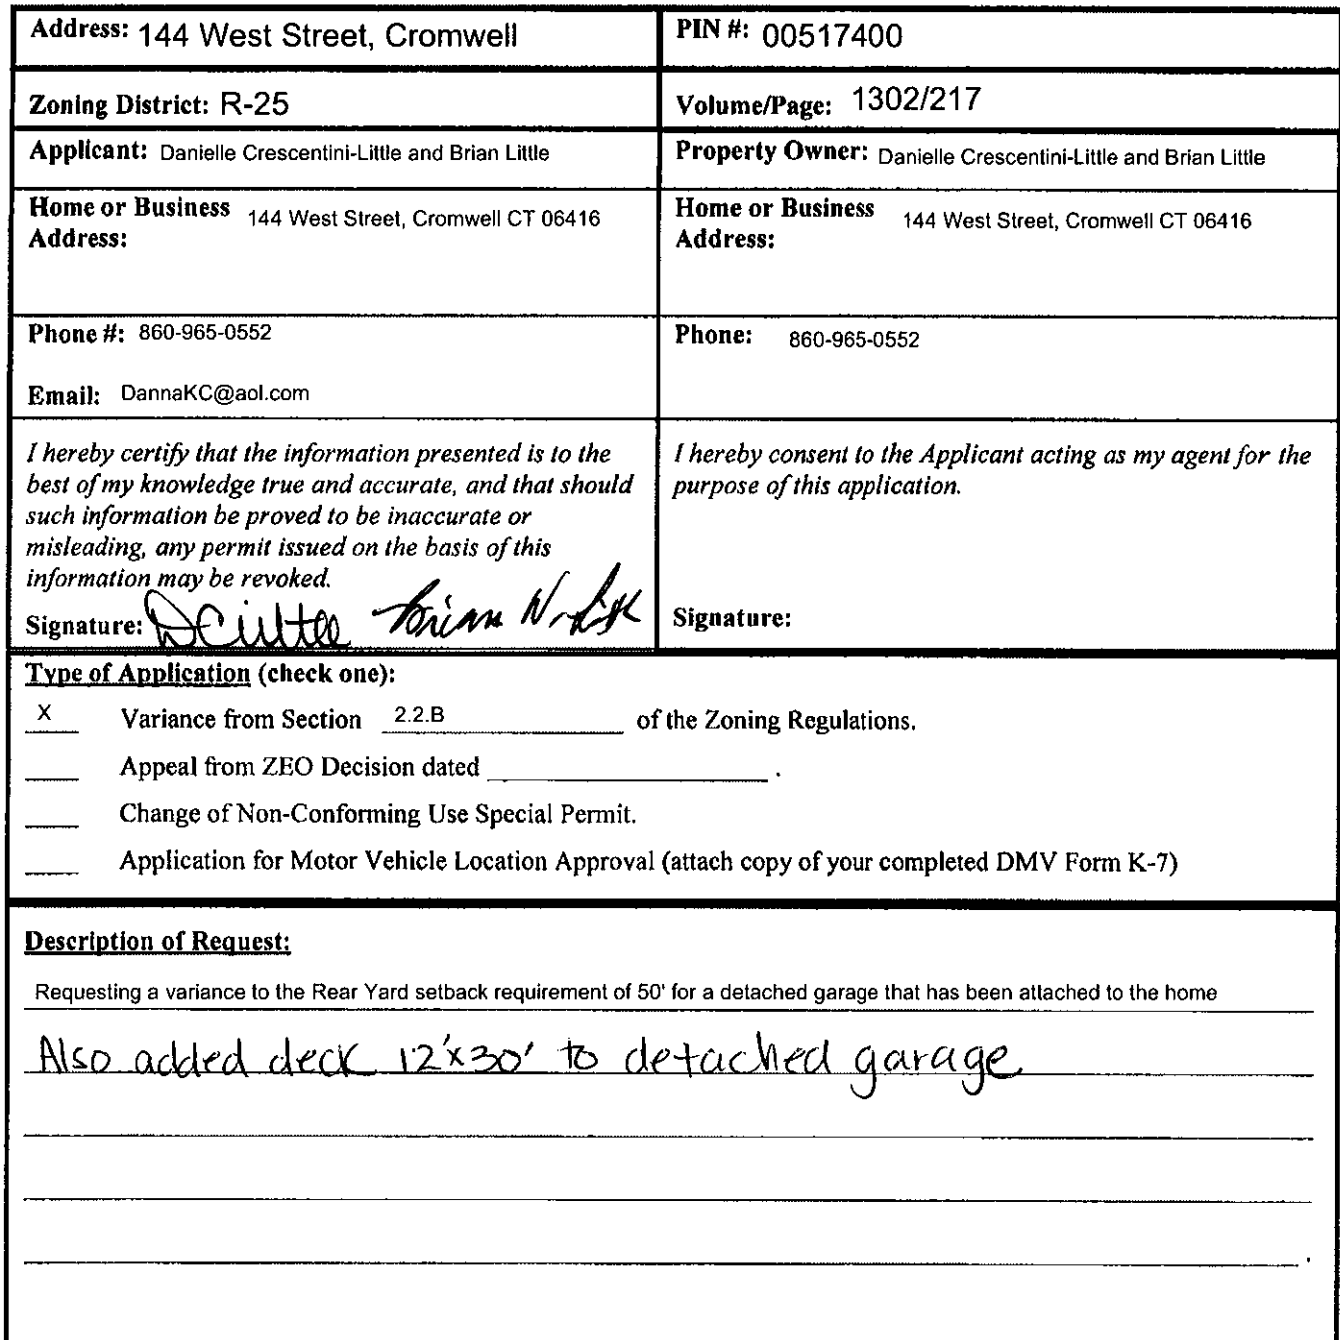 Address: 144 West Street, Cromwell
PIN #: 00517400
Zoning District: R-25
Volume/Page: 1302/217
Applicant: Danielle Crescentini-Little and Brian Little
Property Owner: Danielle Crescentini-Little and Brian Little
Home or Business 144 West Street, Cromwell CT 06416
Address:
Home or Business 144 West Street, Cromwell CT 06416
Address:
Phone #: 860-965-0552
Email: DannaKC@aol.com
Phone: 860-965-0552
I hereby certify that the information presented is to the
best of my knowledge true and accurate, and that should
such information be proved to be inaccurate or
misleading, any permit issued on the basis of this
information may be revoked.
Signature:
I hereby consent to the Applicant acting as my agent for the
purpose of this application.
Signature:
Type of Application (check one):
X Variance from Section 2.2.B of the Zoning Regulations.
Appeal from ZEO Decision dated .
Change of Non-Conforming Use Special Permit.
Application for Motor Vehicle Location Approval (attach copy of your completed DMV Form K-7)
Description of Request:
Requesting a variance to the Rear Yard setback requirement of 50' for a detached garage that has been attached to the home
Also added deck 12'x30' to detached garage